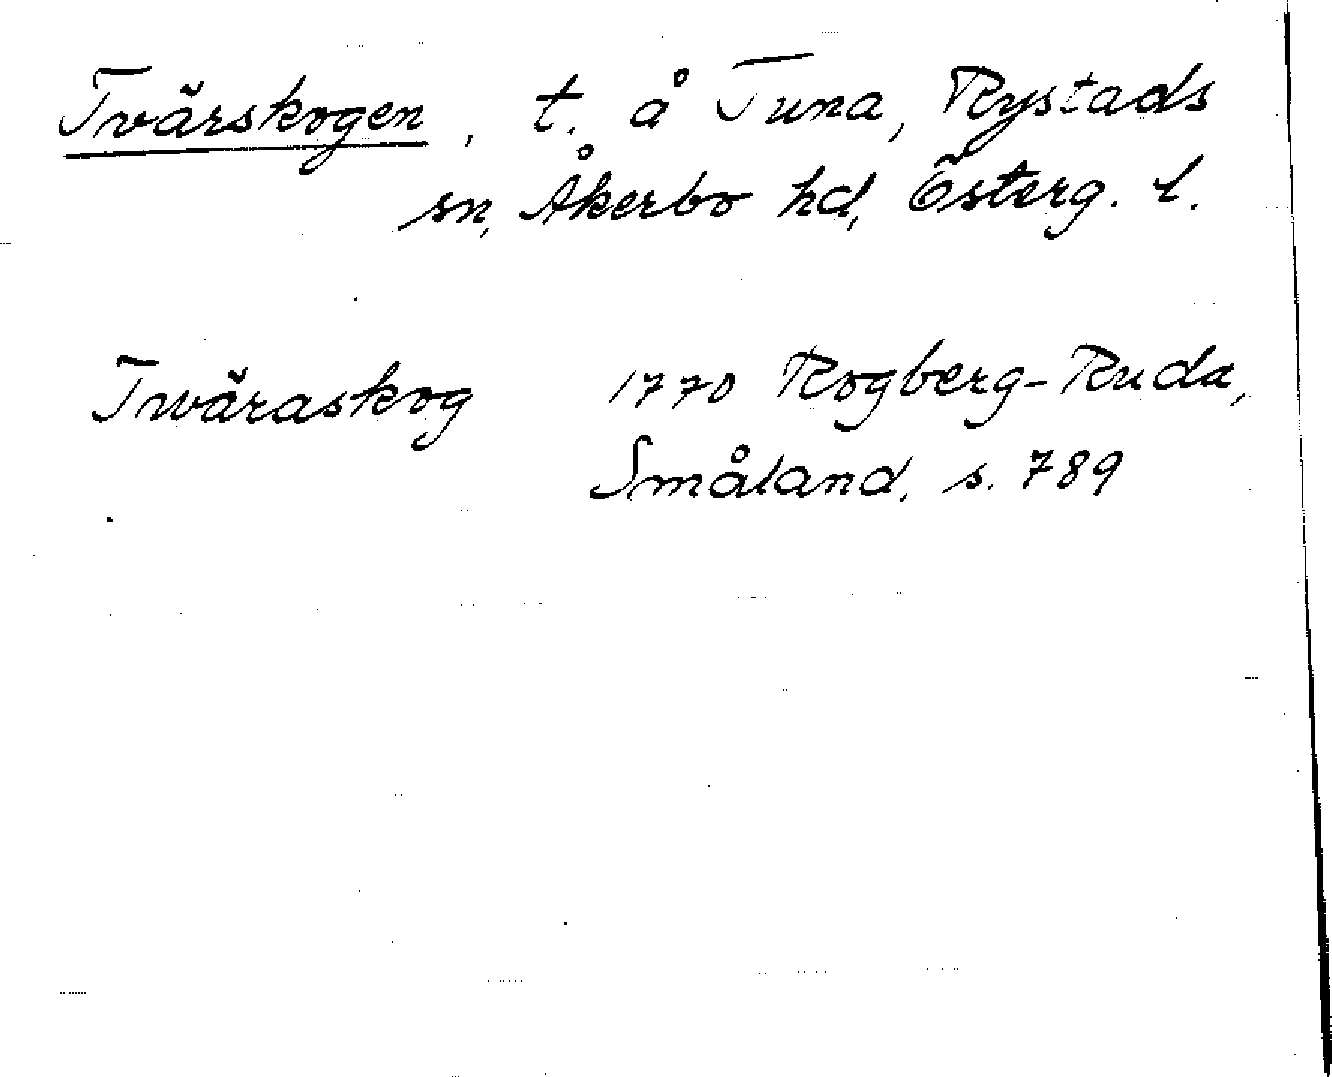 Tvärskogen, t. å Tuna, Rystads
sn, Åkerbo hd, Österg. l.
Tväraskog 1770 Rogberg-Ruda,
Småland, s. 789